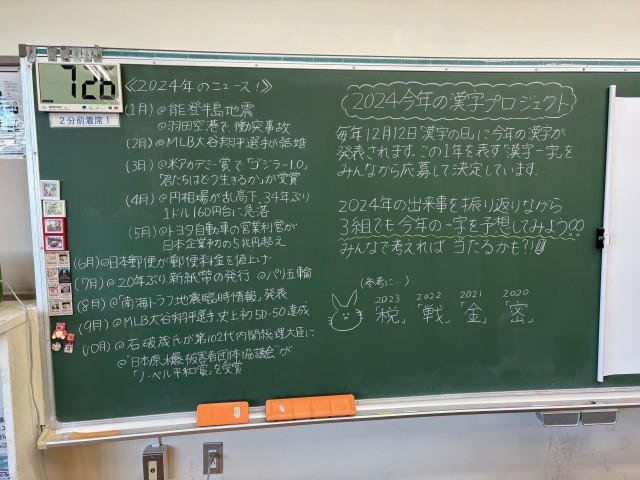 2分前着席！
《2024年のニュース！》
(1月) @能登半島地震
@羽田空港で衝突事故
(2月) @MLB大谷翔平選手が結婚
(3月) @米アカデミー賞で「ゴジラ-1.0」
「君たちはどう生きるか」が受賞
(4月) @円相場が乱高下、34年ぶり
1ドル160円台に急落
(5月) @トヨタ自動車の営業利益が
日本企業初の5兆円越え
(6月) @日本郵便が郵便料金を値上げ
(7月) @20年ぶり新紙幣の発行 @パリ五輪
(8月) @「南海トラフ地震臨時情報」発表
(9月) @MLB大谷翔平選手史上初50-50達成
(10月) @石破茂氏が第102代内閣総理大臣に
@"日本原水爆被害者団体協議会"が
「ノーベル平和賞」を受賞
2024今年の漢字プロジェクト
毎年12月12日「漢字の日」に今年の漢字が
発表されます。この1年を表す「漢字一字」を
みんなから応募して決定しています。
2024年の出来事を振り返りながら
3組でも今年の一字を予想してみよう!!
みんなで考えれば当たるかも?!
(参考に…)
2023 2022 2021 2020
「税」「戦」「金」「密」